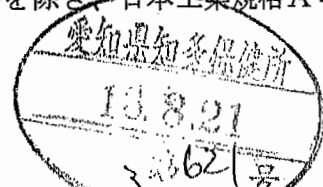 を除き、日本工業規格A
愛知県知多保健所
13.8.21
621
号